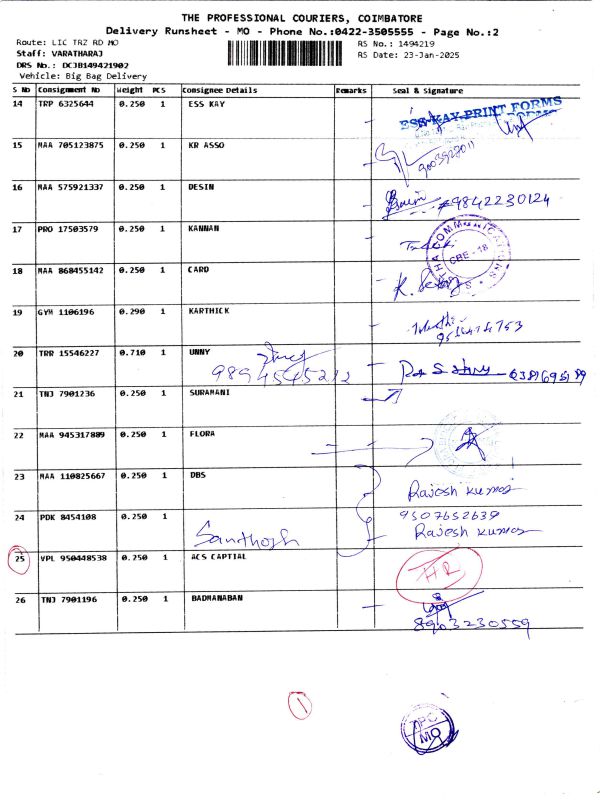 THE PROFESSIONAL COURIERS, COIMBATORE
Delivery Runsheet - MO - Phone No.:0422-3505555 - Page No.:2
Route: LIC TRZ RD MO
RS No.: 1494219
Staff: VARATHARAJ
RS Date: 23-Jan-2025
DRS No.: DCJB149421902
Vehicle: Big Bag Delivery
S No Consignment No Weight PCS Consignee Details Remarks Seal & Signature
14 TRP 6325644 0.250 1 ESS KAY
ESS KAY PRINT FORMS
15 MAA 705123875 0.250 1 KR ASSO
9003928011
16 MAA 575921337 0.250 1 DESIN
9842230124
17 PRO 17503579 0.250 1 KANNAN
COMMUNICATIONS
CBE - 18
18 MAA 868455142 0.250 1 CARD
19 GYM 1106196 0.290 1 KARTHICK
20 TRR 15546227 0.710 1 UNNY
9894545212
21 TNJ 7901236 0.250 1 SURAMANI
22 MAA 945317889 0.250 1 FLORA
23 MAA 110825667 0.250 1 DBS
Rajesh kumar
24 PDK 8454108 0.250 1
9507652639
Santhosh
Rajesh kumar
25 VPL 950448538 0.250 1 ACS CAPTIAL
HR
26 TNJ 7901196 0.250 1 BADMANABAN
8903230559
1
TPC
MO